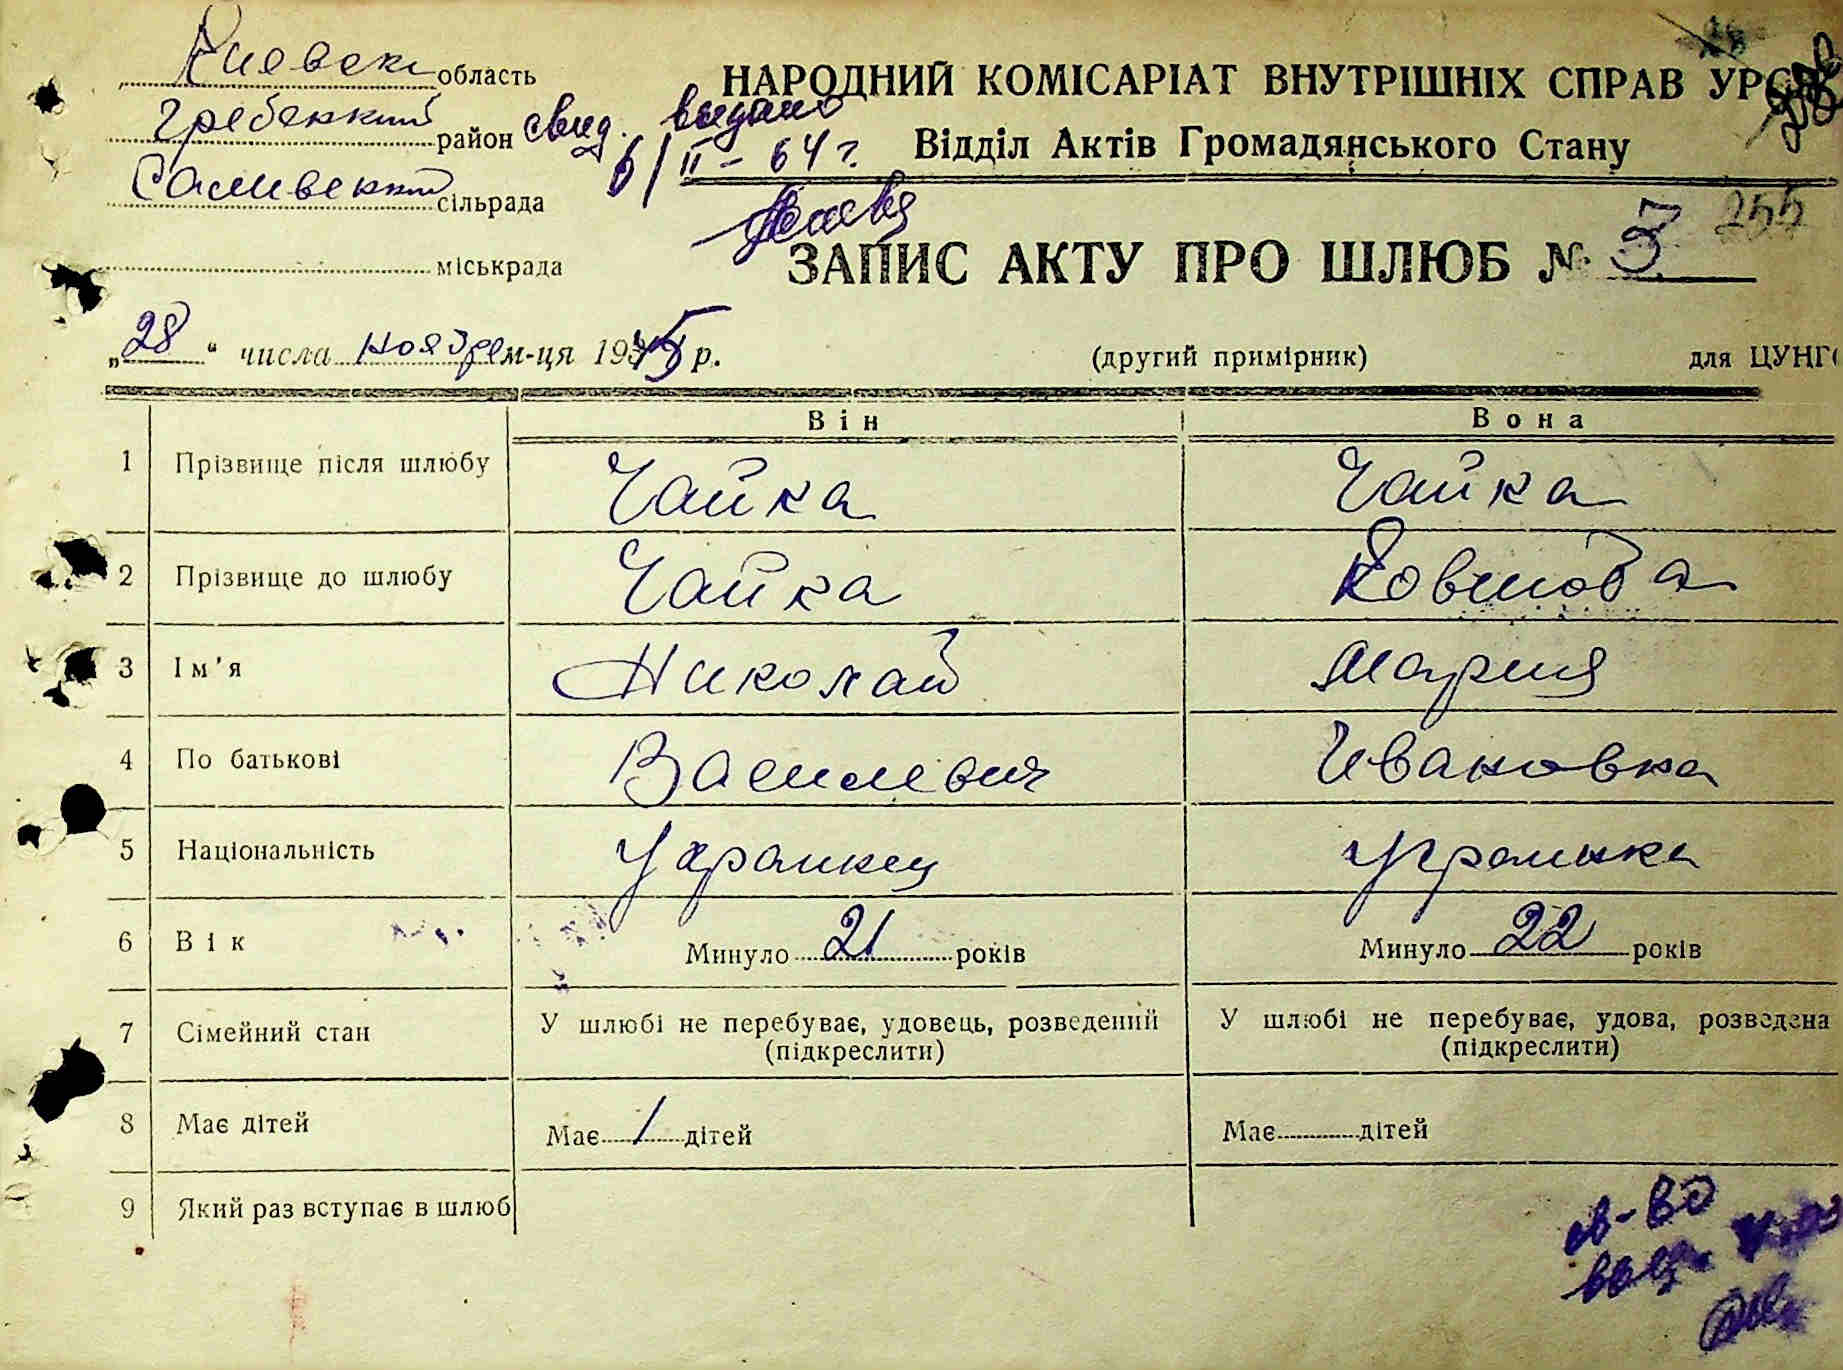 Киевск область
НАРОДНИЙ КОМІСАРІАТ ВНУТРІШНІХ СПРАВ УРСР
Гребенкий район
свид. видано
6/II - 64 г.
Відділ Актів Громадянського Стану
сільрада
міськрада
ЗАПИС АКТУ ПРО ШЛЮБ № 3
255
„28“ числа ноября м-ця 1945 р.
(другий примірник)
для ЦУНГО
Він Вона
1 Прізвище після шлюбу Чайка Чайка
2 Прізвище до шлюбу Чайка
3 Ім'я Николай Мария
4 По батькові Василевич Ивановна
5 Національність Украинец Украинка
6 Вік Минуло 21 років Минуло 22 років
7 Сімейний стан У шлюбі не перебуває, удовець, розведений У шлюбі не перебуває, удова, розведена
(підкреслити) (підкреслити)
8 Має дітей Має 1 дітей Має дітей
9 Який раз вступає в шлюб
св-во